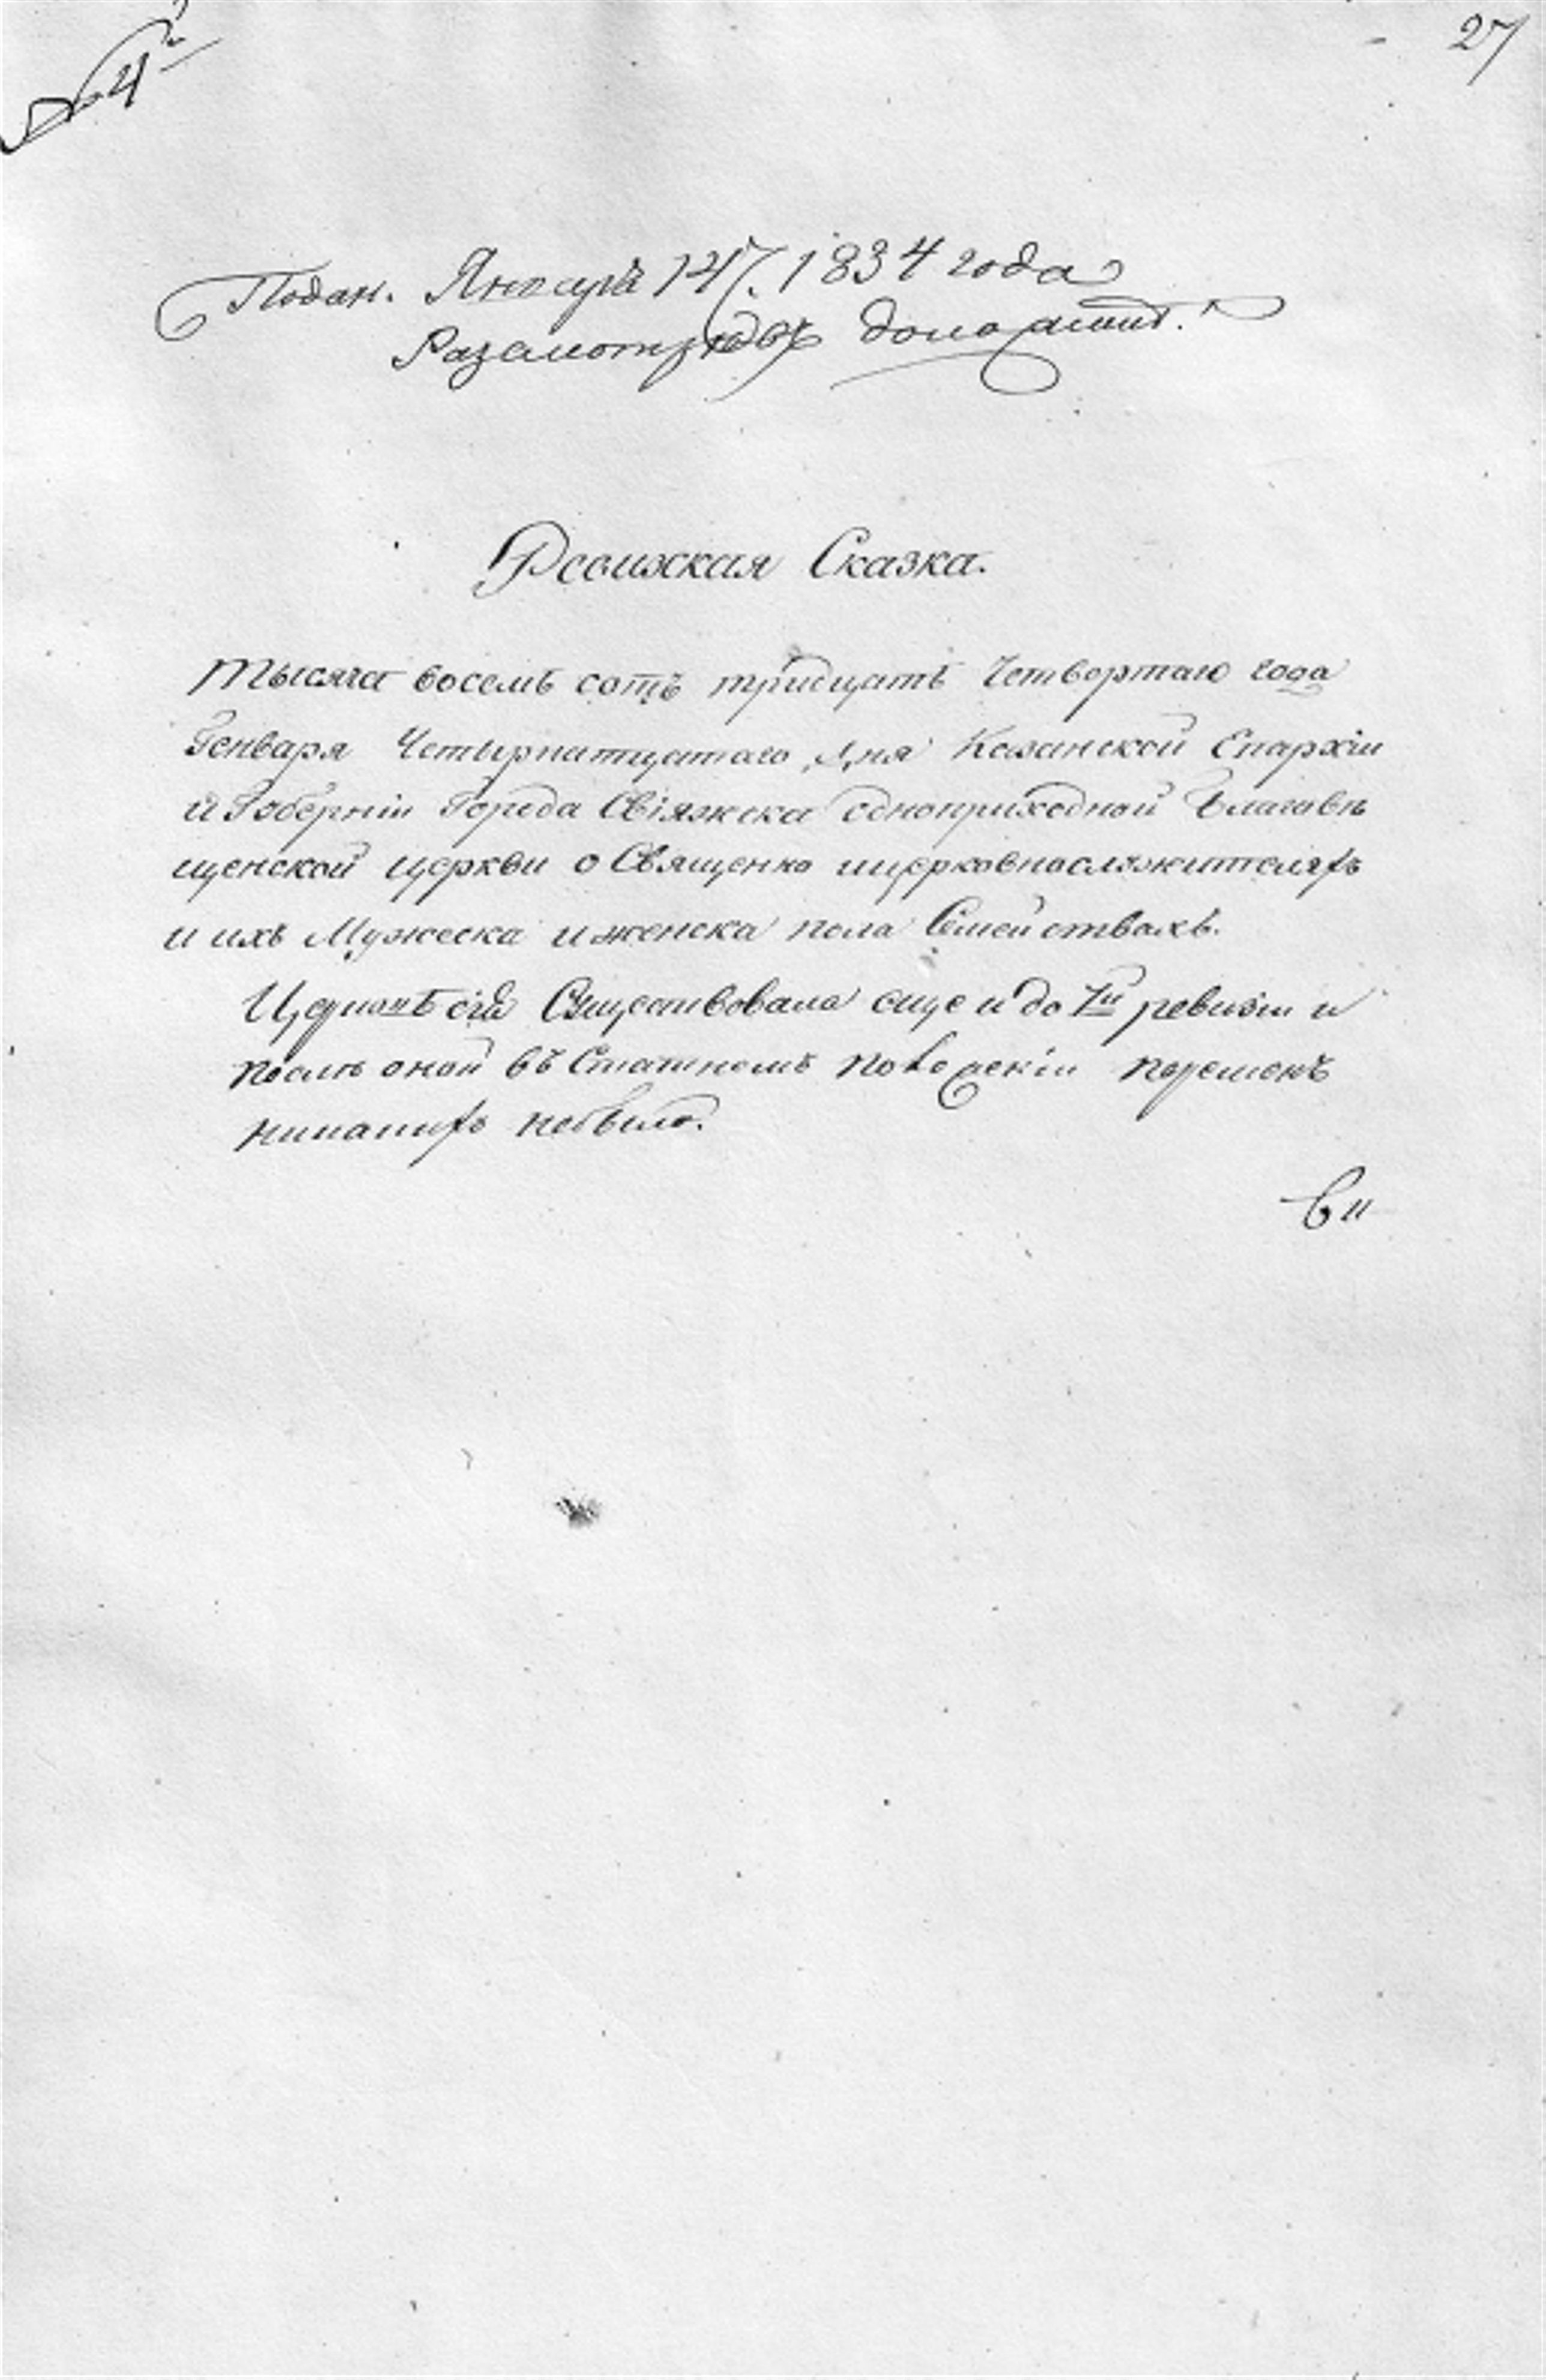 № 4й
27
Подан. Января 14. 1834 года
Разсмотревъ доложить.
Ревижская Сказка.
Тысяча восемь сотъ тридцать Четвертаго года
Генваря Четырнатцатаго дня Казанской Епархіи
и Губерніи Города Свіяжска одноприходной Благовѣ
щенской церкви о Священно ицерковнослужителяхъ
и ихъ Мужеска и женска пола Семействахъ.
Церковь сія Существовала еще и до 7й ревизіи и
послѣ оной въ Статномъ положеніи перемѣнъ
никакихъ небыло.